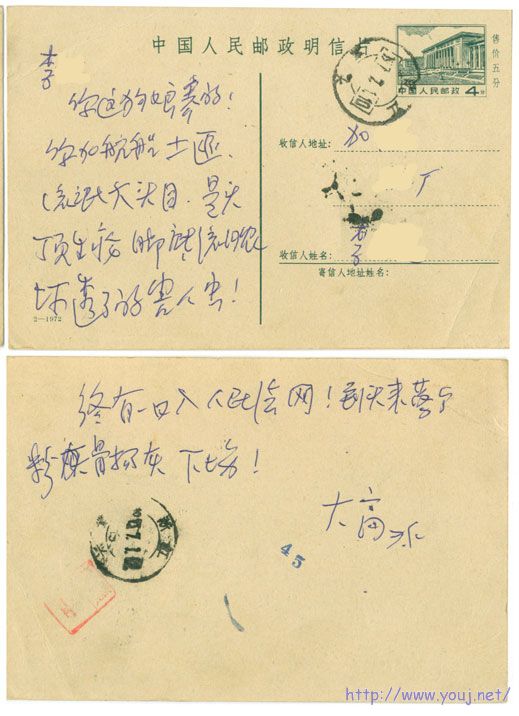 中国人民邮政明信片
售价五分
中国人民邮政 4分
收信人地址：加
厂
收信人姓名：李子
寄信人地址姓名：
李子
你这狗娘养的！
你加航船土匪、
流氓大头目。是头
顶生疮脚底流脓
坏透了的害人虫！
2—1972
终有一日入人民法网！到头来落了
粉碎骨扬灰下场！
大富
45
http://www.youj.net/